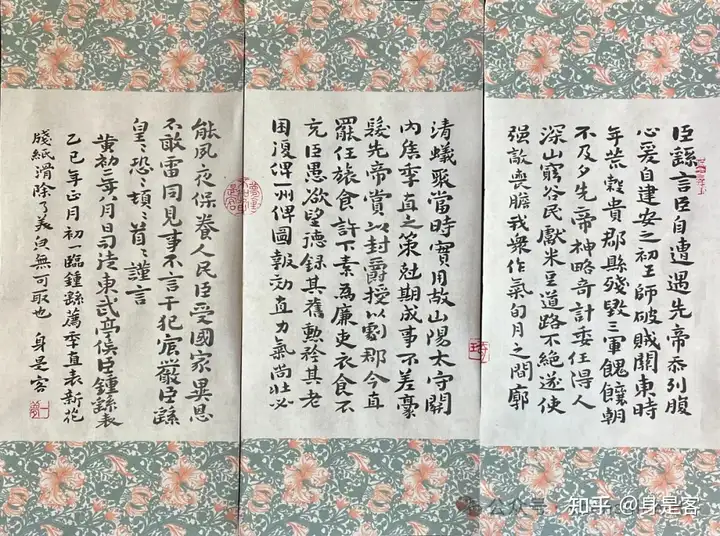 臣繇言臣自遭遇先帝忝列腹
心爰自建安之初王師破賊關東時
年荒穀貴郡縣殘毀三軍餽饟朝
不及夕先帝神略奇計委任得人
深山窮谷民獻米豆道路不絕遂使
强敵喪膽我衆作氣旬月之間廓
清蟻聚當時實用故山陽太守關
內侯季直之策尅期成事不差豪
髮先帝賞以封爵授以劇郡今直
罷任旅食許下素為廉吏衣食不
充臣愚欲望德録其舊勲矜其老
困復俾一州俾圖報効直力氣尚壯必
能夙夜保養人民臣受國家異恩
不敢雷同見事不言干犯宸嚴臣繇
皇〻恐〻頓〻首〻謹言
黄初二年八月日司徒東武亭侯臣鍾繇表
乙巳年正月初一臨鍾繇薦季直表新花
牋紙滑除了美白無可取也 身是客
公众号
知乎 @身是客